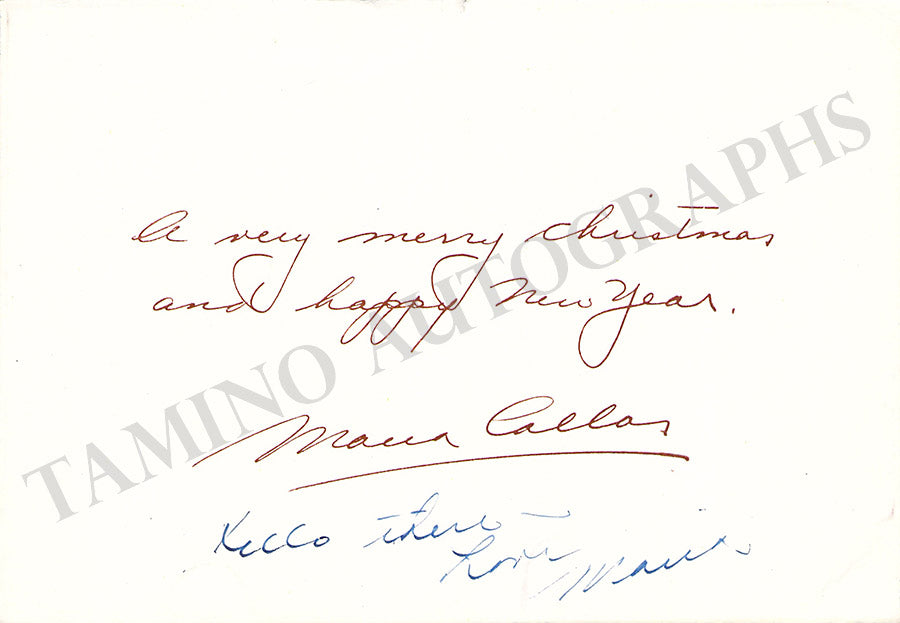 A very merry christmas
and happy New Year.
Maria Callas
Hello there –
Love Maria
TAMINO AUTOGRAPHS